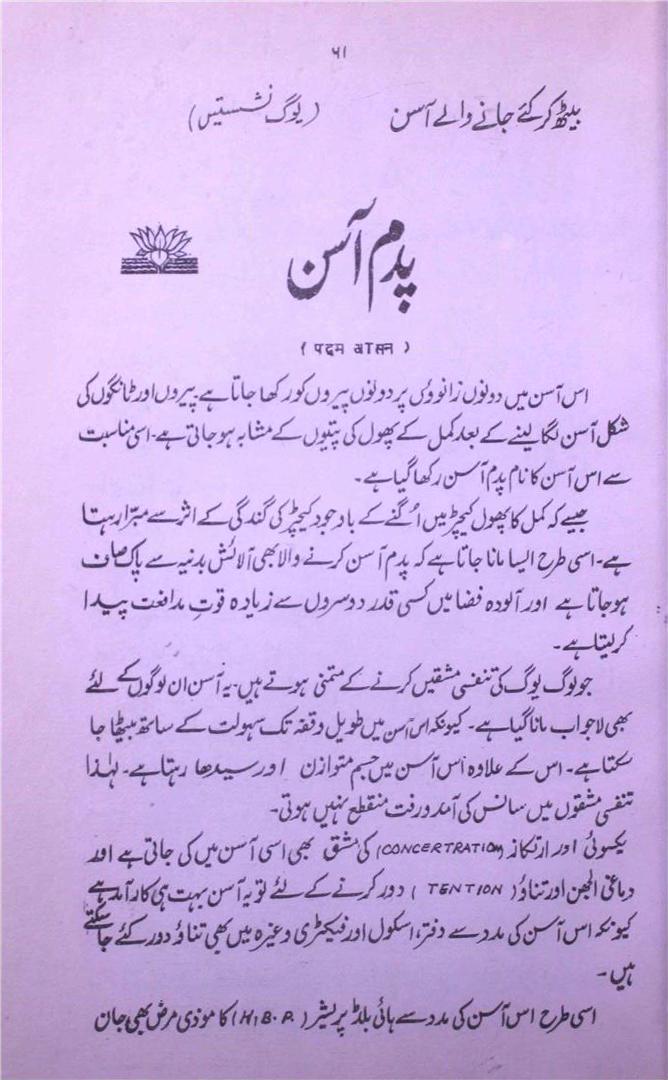 ۶۱
بیٹھ کر کئے جانے والے آسن (یوگ نشستیں)
پدم آسن
( पदम आसन )
اس آسن میں دونوں زانوؤں پر دونوں پیروں کو رکھا جاتا ہے۔ پیروں اور ٹانگوں کی
شکل آسن لگا لینے کے بعد کمل کے پھول کی پتیوں کے مشابہ ہو جاتی ہے۔ اسی مناسبت
سے اس آسن کا نام پدم آسن رکھا گیا ہے۔
جیسے کہ کمل کا پھول کیچڑ میں اُگنے کے باوجود کیچڑ کی گندگی کے اثر سے مبرّا رہتا
ہے۔ اسی طرح ایسا مانا جاتا ہے کہ پدم آسن کرنے والا بھی آلائش بدنیہ سے پاک صاف
ہو جاتا ہے اور آلودہ فضا میں کسی قدر دوسروں سے زیادہ قوتِ مدافعت پیدا
کر لیتا ہے۔
جو لوگ یوگ کی تنفسی مشقیں کرنے کے متمنی ہوتے ہیں۔ یہ آسن ان لوگوں کے لئے
بھی لاجواب مانا گیا ہے۔ کیونکہ اس آسن میں طویل وقفہ تک سہولت کے ساتھ بیٹھا جا
سکتا ہے۔ اس کے علاوہ اس آسن میں جسم متوازن اور سیدھا رہتا ہے۔ لہٰذا
تنفسی مشقوں میں سانس کی آمد ورفت منقطع نہیں ہوتی۔
یکسوئی اور ارتکاز (CONCERTRATION) کی مشق بھی اسی آسن میں کی جاتی ہے اور
دماغی الجھن اور تناؤ ( TENTION ) دور کرنے کے لئے تو یہ آسن بہت ہی کارآمد ہے
کیونکہ اس آسن کی مدد سے دفتر، اسکول اور فیکٹری وغیرہ میں بھی تناؤ دور کئے جا سکتے
ہیں۔
اسی طرح اس آسن کی مدد سے ہائی بلڈ پریشر (H.B.P.) کا موذی مرض بھی جان